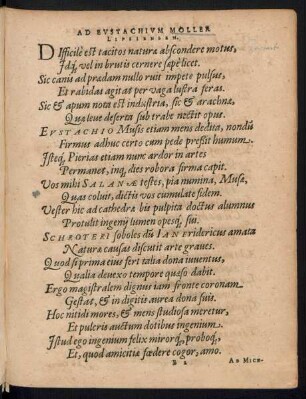 AD EVSTACHIVM MOLLER
LIPSIENSEM.
DIfficile est tacitos naturæ abscondere motus,
Idq́, vel in brutis cernere sæpè licet.
Sic canis ad prædam nullo ruit impete pulsus,
Et rabidas agitat per vaga lustra feras.
Sic & apum nota est industria, sic & arachnæ,
Qualeue deserta sub trabe nectit opus.
EVSTACHIO Musis etiam mens dedita, nondũ
Firmus adhuc certo cum pede pressit humum.
Isteq́, Pierias etiam nunc ardor in artes
Permanet, inq́, dies robora firma capit.
Vos mihi SALANÆ testes, pia numina, Musæ,
Quas coluit, dictis vos cumulate fidem.
Vester hic ad cathedræ huc pulpita doctus alumnus
Protulit ingenij lumen opesq́, sui.
SCHROTERI soboles dũ IANFRIDERICUS amata
Naturæ causas discutit arte graues.
Quod si prima eius fert talia dona iuuentus,
Qualia deuexo tempore quæso dabit.
Ergo magistralem dignus iam fronte coronam
Gestat, & in digitis aurea dona suis.
Hoc nitidi mores, & mens studiosa meretur,
Et pulcris auctum dotibus ingenium.
Istud ego ingenium felix mirorq́, proboq́,
Et, quod amicitiæ fœdere cogor, amo.
B 2 AD MICH-